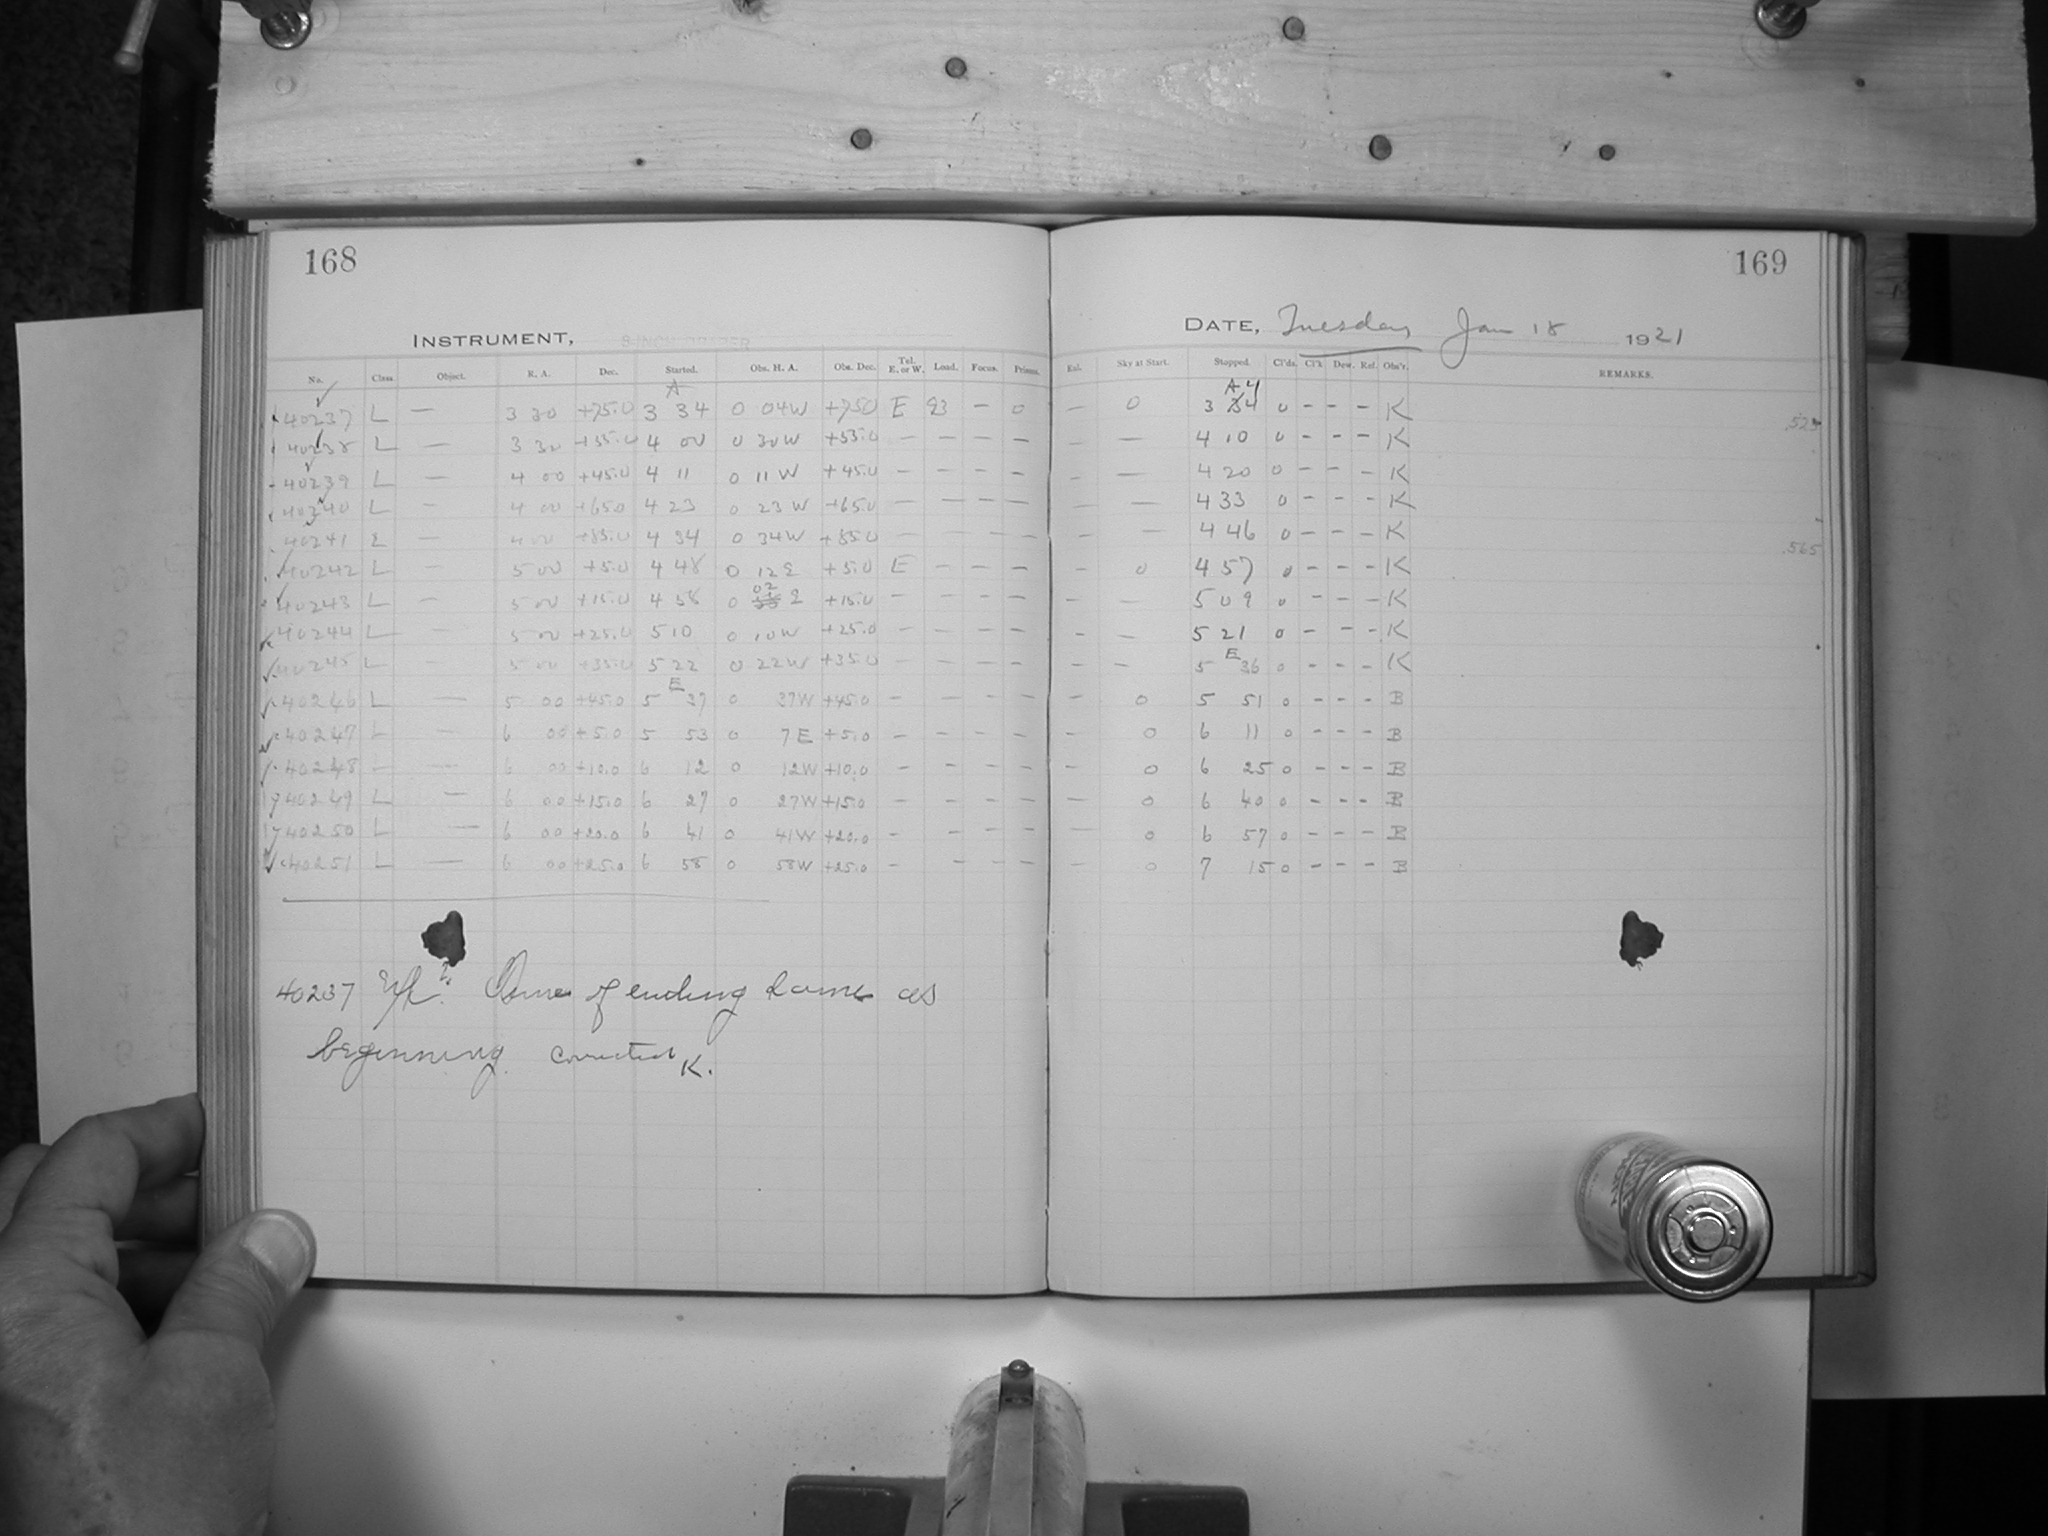 168
169
INSTRUMENT,
DATE, Tuesday Jan 18 1921
No. Class Object. R. A. Dec. Started. Obs. H. A. Obs. Dec. Tel. E. or W. Load. Focus. Prisms. Exl. Sky at Start. Stopped. Cl'ds. Cl'k Dew. Ref. Obs'r. REMARKS.
A A 4
40237 L — 3 30 +75.0 3 34 0 04W +75.0 E 93 — 0 — 0 3 34 0 - - - K .525
40238 L — 3 30 +35.0 4 00 0 30W +35.0 — — — — — — 4 10 0 - - - K
40239 L — 4 00 +45.0 4 11 0 11W +45.0 — — — — — — 4 20 0 - - - K
40240 L — 4 00 +65.0 4 23 0 23W +65.0 — — — — — — 4 33 0 - - - K
40241 L — 4 00 +85.0 4 34 0 34W +85.0 — — — — — — 4 46 0 - - - K .565
40242 L — 5 00 +5.0 4 48 0 12E +5.0 E — — — — 0 4 57 0 - - - K
40243 L — 5 00 +15.0 4 58 0 02 E +15.0 — — — — — — 5 09 0 - - - K
40244 L — 5 00 +25.0 5 10 0 10W +25.0 — — — — — — 5 21 0 - - - K
40245 L — 5 00 +35.0 5 22 0 22W +35.0 — — — — — — 5 36 0 - - - K
E E
40246 L — 5 00 +45.0 5 37 0 37W +45.0 — — — — — 0 5 51 0 - - - B
40247 L — 6 00 +5.0 5 53 0 7E +5.0 — — — — — 0 6 11 0 - - - B
40248 — — 6 00 +10.0 6 12 0 12W +10.0 — — — — — 0 6 25 0 - - - B
40249 L — 6 00 +15.0 6 27 0 27W +15.0 — — — — — 0 6 40 0 - - - B
40250 L — 6 00 +20.0 6 41 0 41W +20.0 — — — — — 0 6 57 0 - - - B
40251 L — 6 00 +25.0 6 58 0 58W +25.0 — — — — — 0 7 15 0 - - - B
40237 of ending same as
beginning. corrected K.